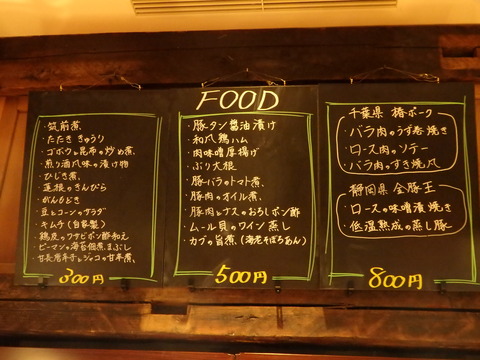 FOOD
・筑前煮
・たたききゅうり
・ゴボウと昆布の炒め煮
・煎り酒風味の漬け物
・ひじき煮
・蓮根のきんぴら
・がんもどき
・豆とコーンのサラダ
・キムチ(自家製)
・鶏皮のワサビポン酢和え
・ピーマンの海苔佃煮まぶし
・甘長唐辛子とジャコの甘辛煮
300円
・豚タン醤油漬け
・和風鶏ハム
・肉味噌厚揚げ
・ぶり大根
・豚バラのトマト煮
・豚肉のオイル煮
・豚肉とナスのおろしポン酢
・ムール貝のワイン蒸し
・カブの旨煮(海老そぼろあん)
500円
千葉県 椿ポーク
・バラ肉のうず巻焼き
・ロース肉のソテー
・バラ肉のすき焼風
静岡県 金豚王
・ロースの味噌漬焼き
・低温熟成の蒸し豚
800円